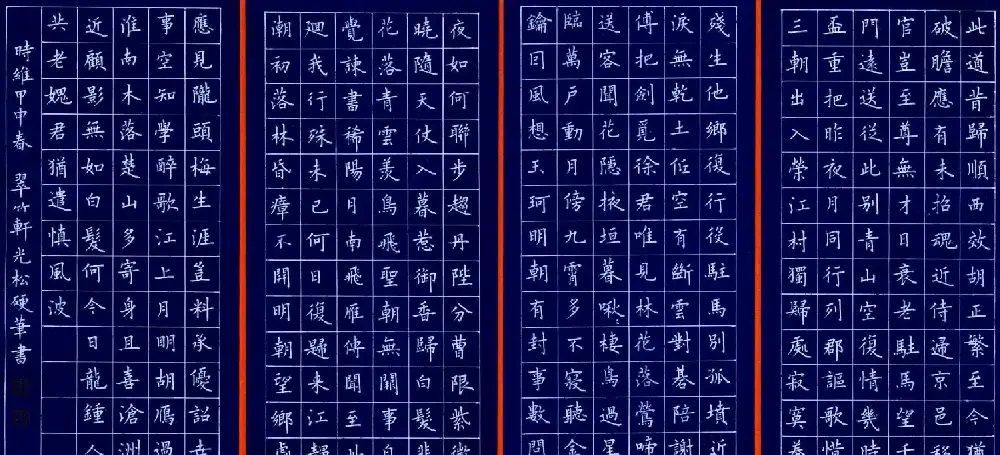 此道昔歸順西效胡正繁至今猶
破膽應有未招魂近侍歸京邑移
官豈至尊無才日衰老駐馬望千
門遠送從此別青山空復情幾時
盃重把昨夜月同行列郡謳歌惜
三朝出入榮江村獨歸處寂寞養
殘生他鄉復行役駐馬別孤墳近
淚無乾土低空有斷雲對碁陪謝
傅把劍覓徐君唯見林花落鶯啼
送客聞花隱掖垣暮啾啾棲鳥過星
臨萬戶動月傍九霄多不寢聽金
鑰因風想玉珂明朝有封事數問
夜如何聯步趨丹陛分曹限紫微
曉隨天仗入暮惹御香歸白髮悲
花落青雲羨鳥飛聖朝無闕事自
覺諫書稀陽月南飛雁傳聞至此
迴我行殊未已何日復歸来江靜
潮初落林昏瘴不開明朝望鄉處
應見隴頭梅生涯豈料承優詔世
事空知學醉歌江上月明胡雁過
淮南木落楚山多寄身且喜滄洲
近顧影無如白髮何今日龍鍾人
共老媿君猶遣慎風波
時維甲申春 翠竹軒光松硬筆書